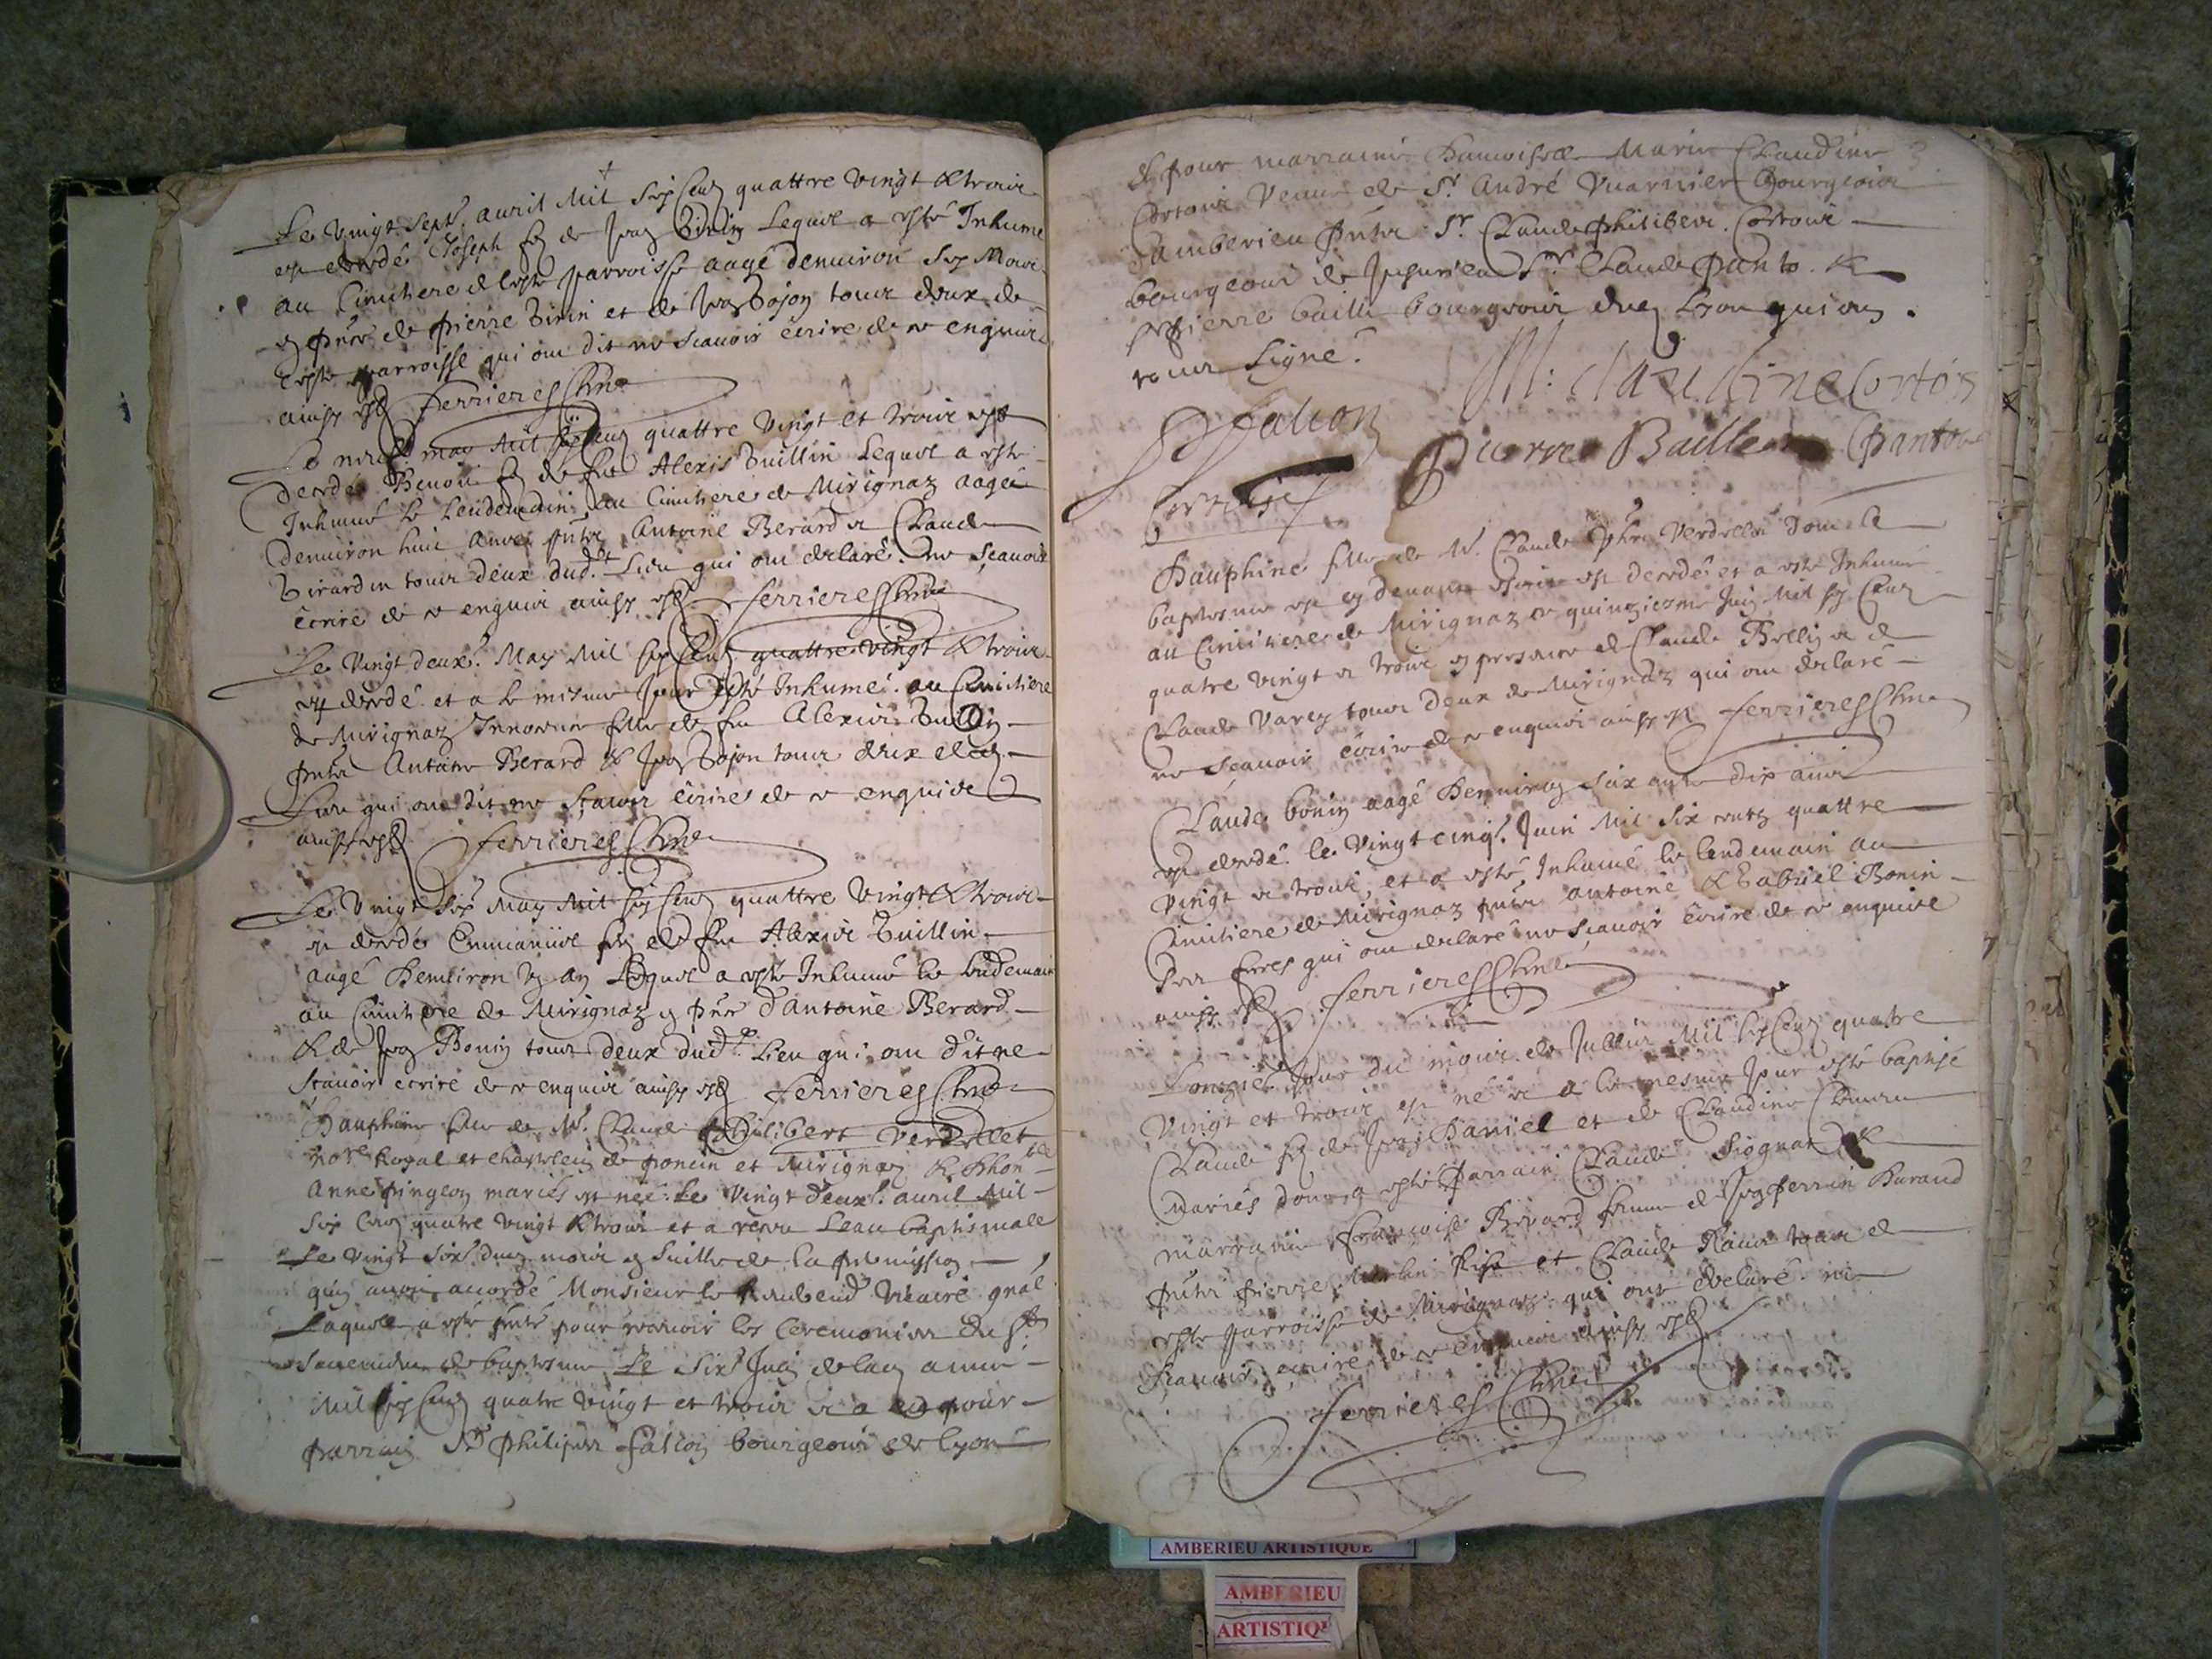 Le Vingt Sept.e auril Mil Six Cens quattre Vingt & trois
est decedé Joseph fils de Jean Tirin Lequel a esté Inhumé
au Cimitiere de ceste parroisse aagé denuiron Six Mois
en pñce de pierre Tirin et de Jean tous deux de
ceste parroisse qui ont dit ne Scauoir écrire de ce enquis
ainsy est Ferrieres
Le may Mil Six Cens quattre Vingt et trois est
decedé Benoit fils de feu Alexis Tuillin Lequel a esté
Inhumé le Lendemain au Cimitiere de Mirignaz aagé
denuiron huit Antoine Berard et Claude
Girardin tous deux dud.t Lieu qui ont declaré ne Sçauoir
écrire de ce enquis ainsy est Ferrieres
Le Vingt deux.e May Mil Six Cens quattre vingt & trois
est decedé et a le mesme Jour esté Inhumé au Cimitiere
de Mirignaz fille de feu Alexis Tuillin
Antoine Berard & Jean tous deux
Lieu qui ont dit ne Sçauoir écrire de ce enquis
ainsy est Ferrieres
Le Vingt Six May Mil Six Cens quattre Vingt & trois
est decedé Emmanuel fils de feu Alexis Tuillin
aagé denuiron Un an Lequel a esté Inhumé le lendemain
au Cimitiere de Mirignaz en pñce d'Antoine Berard
& de Jean Bonin tous deux dud.t Lieu qui ont dit ne
Scauoir écrire de ce enquis ainsy est Ferrieres
Dauphine fille de M.e Claude Philibert Verdellet
no.re Royal et Chastelain de poncin et Mirignaz &
Anne pingeon mariés est née le Vingt deux.e auril Mil
Six Cens quatre Vingt & trois et a receu Leau baptismale
Le Vingt Six.e mois en Suitte de la permission
quen auoit acordé Monsieur le Vicaire gnâl
Laquelle a esté pour receuoir les Ceremonies du St
de baptesme Le Six.e Juin de lan
Mil Six Cens quatre Vingt et trois et a eu pour
parrain S.r Philipes Falcon bourgeois de Lyon
& pour marraine Damoiselle Marie Claudine
Cortois Veuue de S.r André Vuarnier Bourgeois
d'amberieu S.r Claude philibert Cortois
bourgeois de Jujurieu S.r Claude panto &
S.r pierre baille bourgeois Lyon qui ont
tous Signé
M: Claudine Cortois
Falcon
Pierre Baille Panto
Cortois
Dauphine fille de M.e Claude Phi. Verdellet dont le
baptesme est cy deuant est decedé et a esté Inhumé
au Cimitiere de Mirignaz le quinziesme Juin Mil Six Cens
quatre Vingt et trois en presence de Claude et de
Claude Varey tous deux de Mirignaz qui ont declaré
ne Scauoir écrire de ce enquis ainsy est Ferrieres
Claude bonin aagé denuiron Soix ante dix ans
est decedé le Vingt cinq.e Juin Mil Six cents quattre
Vingt et trois, et a esté Inhumé le lendemain au
Cimitiere de Mirignaz antoine & Gabriel Bonin
qui ont declaré ne sçauoir écrire de ce enquise
ainsy est Ferrieres
Jour du mois de Juillet Mil Six Cens quatre
Vingt et trois est né et a le mesme Jour esté baptisé
Claude fils de Jean Daniel et de Claudine
mariés dont a esté parrain Claude &
marraine francoise femme de Jean perrin
pierre et Claude de
ceste parroisse de Mirignaz qui ont declaré ne
Scauoir écrire de ce enquis ainsy est
Ferrieres
AMBERIEU ARTISTIQUE
AMBERIEU
ARTISTIQU